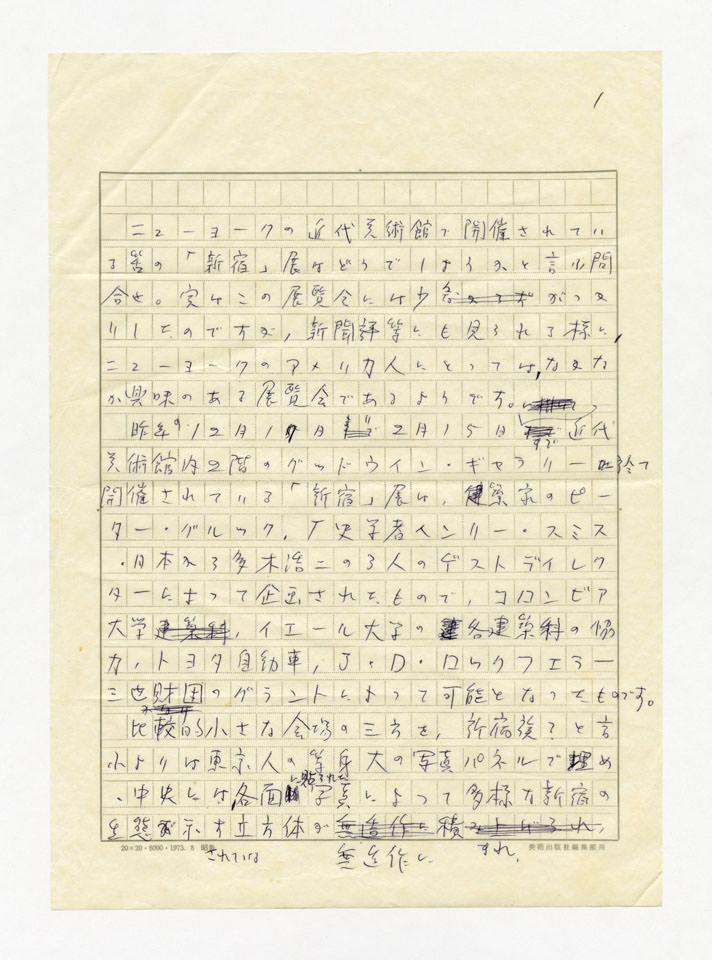 1
ニューヨークの近代美術館で開催されてい
る筈の「新宿」展はどうでしょうかと言う問
合せ。実はこの展覧会には少々がっか
りしたのですが、新聞評等にも見られる様に、
ニューヨークのアメリカ人にとっては、なかな
か興味のある展覧会であるようです。
昨年の12月1日 2月15日 近代
美術館内2階のグッドウイン・ギャラリーに於て
開催されている「新宿」展は、建築家のピー
ター・グルック、歴史学者ヘンリー・スミス
・日本から多木浩二の3人のゲストディレク
ターによって企画されたもので、コロンビア
大学、イエール大学の各建築科の協
力、トヨタ自動車、J・D・ロックフェラー
三世財団のグラントによって可能となったものです。
比較的小さな会場の三方を、新宿族?と言
うよりは東京人の等身大の写真パネルで埋め
、中央には、各面に貼られた写真によって多様な新宿の
生態が示す立方体が無造作に積
20×20・6000・1973. 8 昭
美術出版社編集部用
されている
無造作に
すれ、